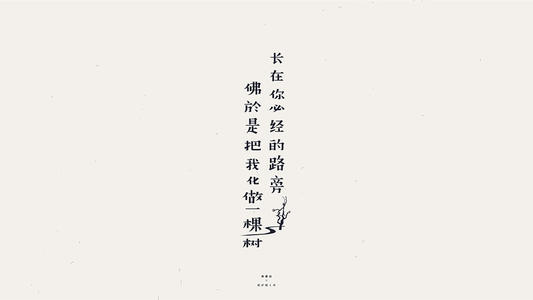 佛於是把我化做一棵树
长在你必经的路旁